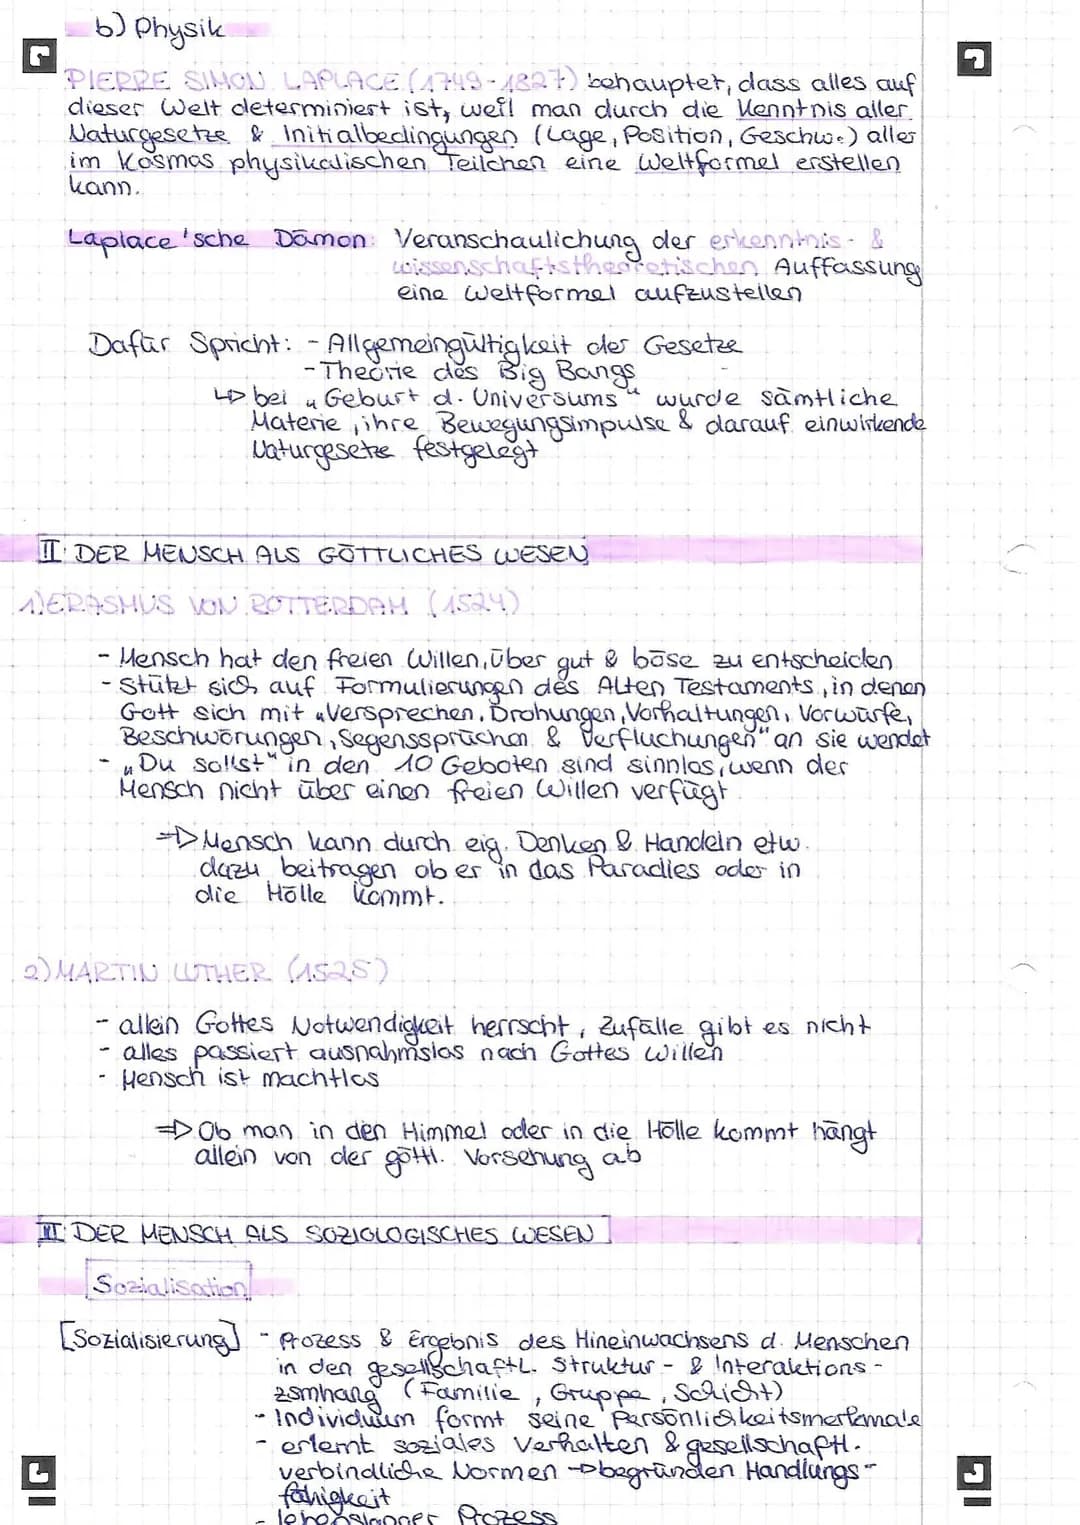 b) Physik
PIERRE SIMON LAPLACE (1749-1827) behauptet, dass alles auf
dieser Welt determiniert ist, weil man durch die Kenntnis aller
Naturgesetze & Initialbedingungen (Lage, Position, Geschw.) aller
im Kosmos physikalischen Teilchen eine Weltformel erstellen
kann.
Laplace'sche Dämon: Veranschaulichung der erkenntnis- &
wissenschaftstheoretischen Auffassung
eine Weltformel aufzustellen
Dafür Spricht: - Allgemeingültigkeit der Gesetze
- Theorie des Big Bangs
↳ bei „Geburt d. Universums" wurde sämtliche
Materie, ihre Bewegungsimpulse & darauf einwirkende
Naturgesetze festgelegt
II: DER MENSCH ALS GÖTTLICHES WESEN
1) ERASMUS VON ROTTERDAM (1524)
- Mensch hat den freien Willen, über gut & böse zu entscheiden
- Stützt sich auf Formulierungen des Alten Testaments, in denen
Gott sich mit „Versprechen, Drohungen, Vorhaltungen, Vorwürfe,
Beschwörungen, Segenssprüchen & Verfluchungen" an sie wendet
- „Du sollst" in den 10 Geboten sind sinnlos, wenn der
Mensch nicht über einen freien Willen verfügt
⇒ Mensch kann durch eig. Denken & Handeln etw.
dazu beitragen ob er in das Paradies oder in
die Hölle kommt.
2) MARTIN LUTHER (1525)
- allein Gottes Notwendigkeit herrscht, Zufälle gibt es nicht
- alles passiert ausnahmslos nach Gottes Willen
- Mensch ist machtlos
⇒ Ob man in den Himmel oder in die Hölle kommt hängt
allein von der göttl. Vorsehung ab
III: DER MENSCH ALS SOZIOLOGISCHES WESEN
Sozialisation
[Sozialisierung] - Prozess & Ergebnis des Hineinwachsens d. Menschen
in den gesellschaftl. Struktur- & Interaktions-
zsmhang (Familie, Gruppe, Schicht)
- Individuum formt seine Persönlichkeitsmerkmale
- erlernt soziales Verhalten & gesellschaftl.
verbindliche Normen → begründen Handlungs-
fähigkeit
- lebenslanger Prozess